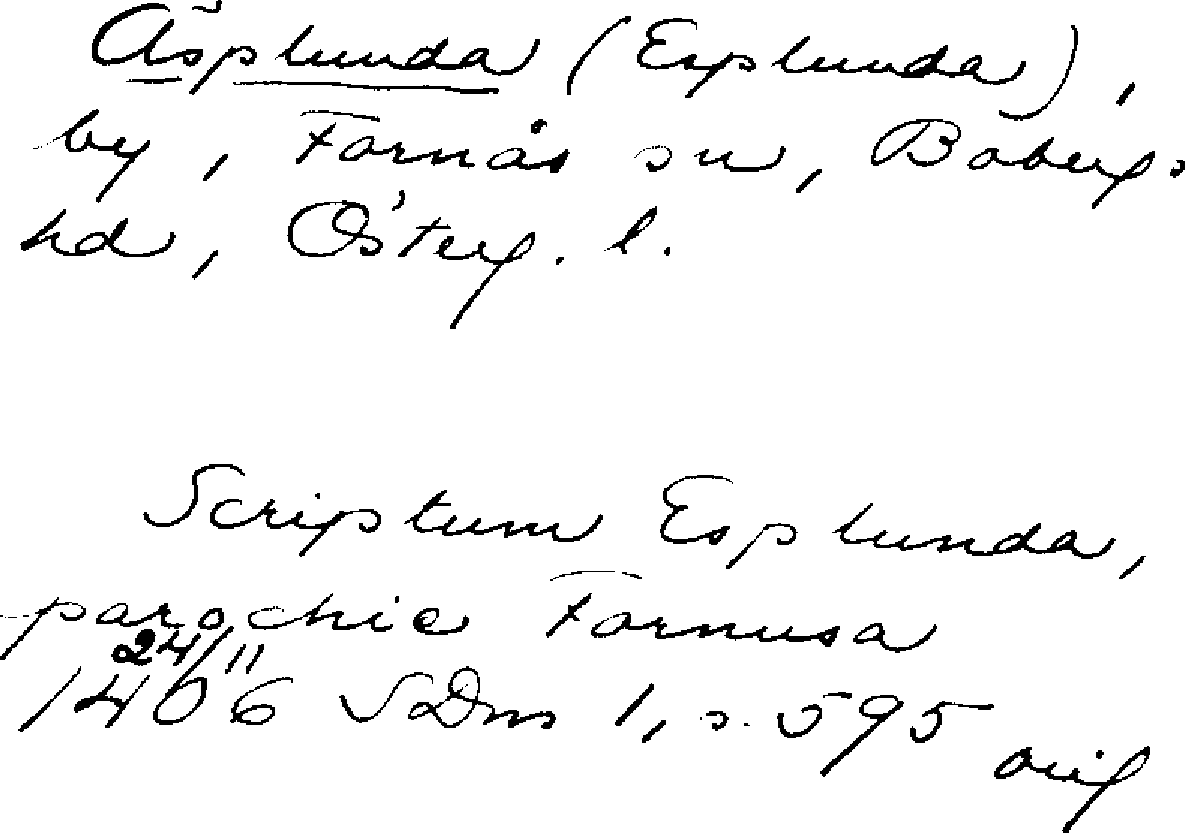 Äsplunda (Esplunda),
by, Fornåsa sn, Bobergs
hd, Österg. l.
Scriptum Esplunda,
parochie Fornusa
24/11
1406 SDns 1, s. 595
orig